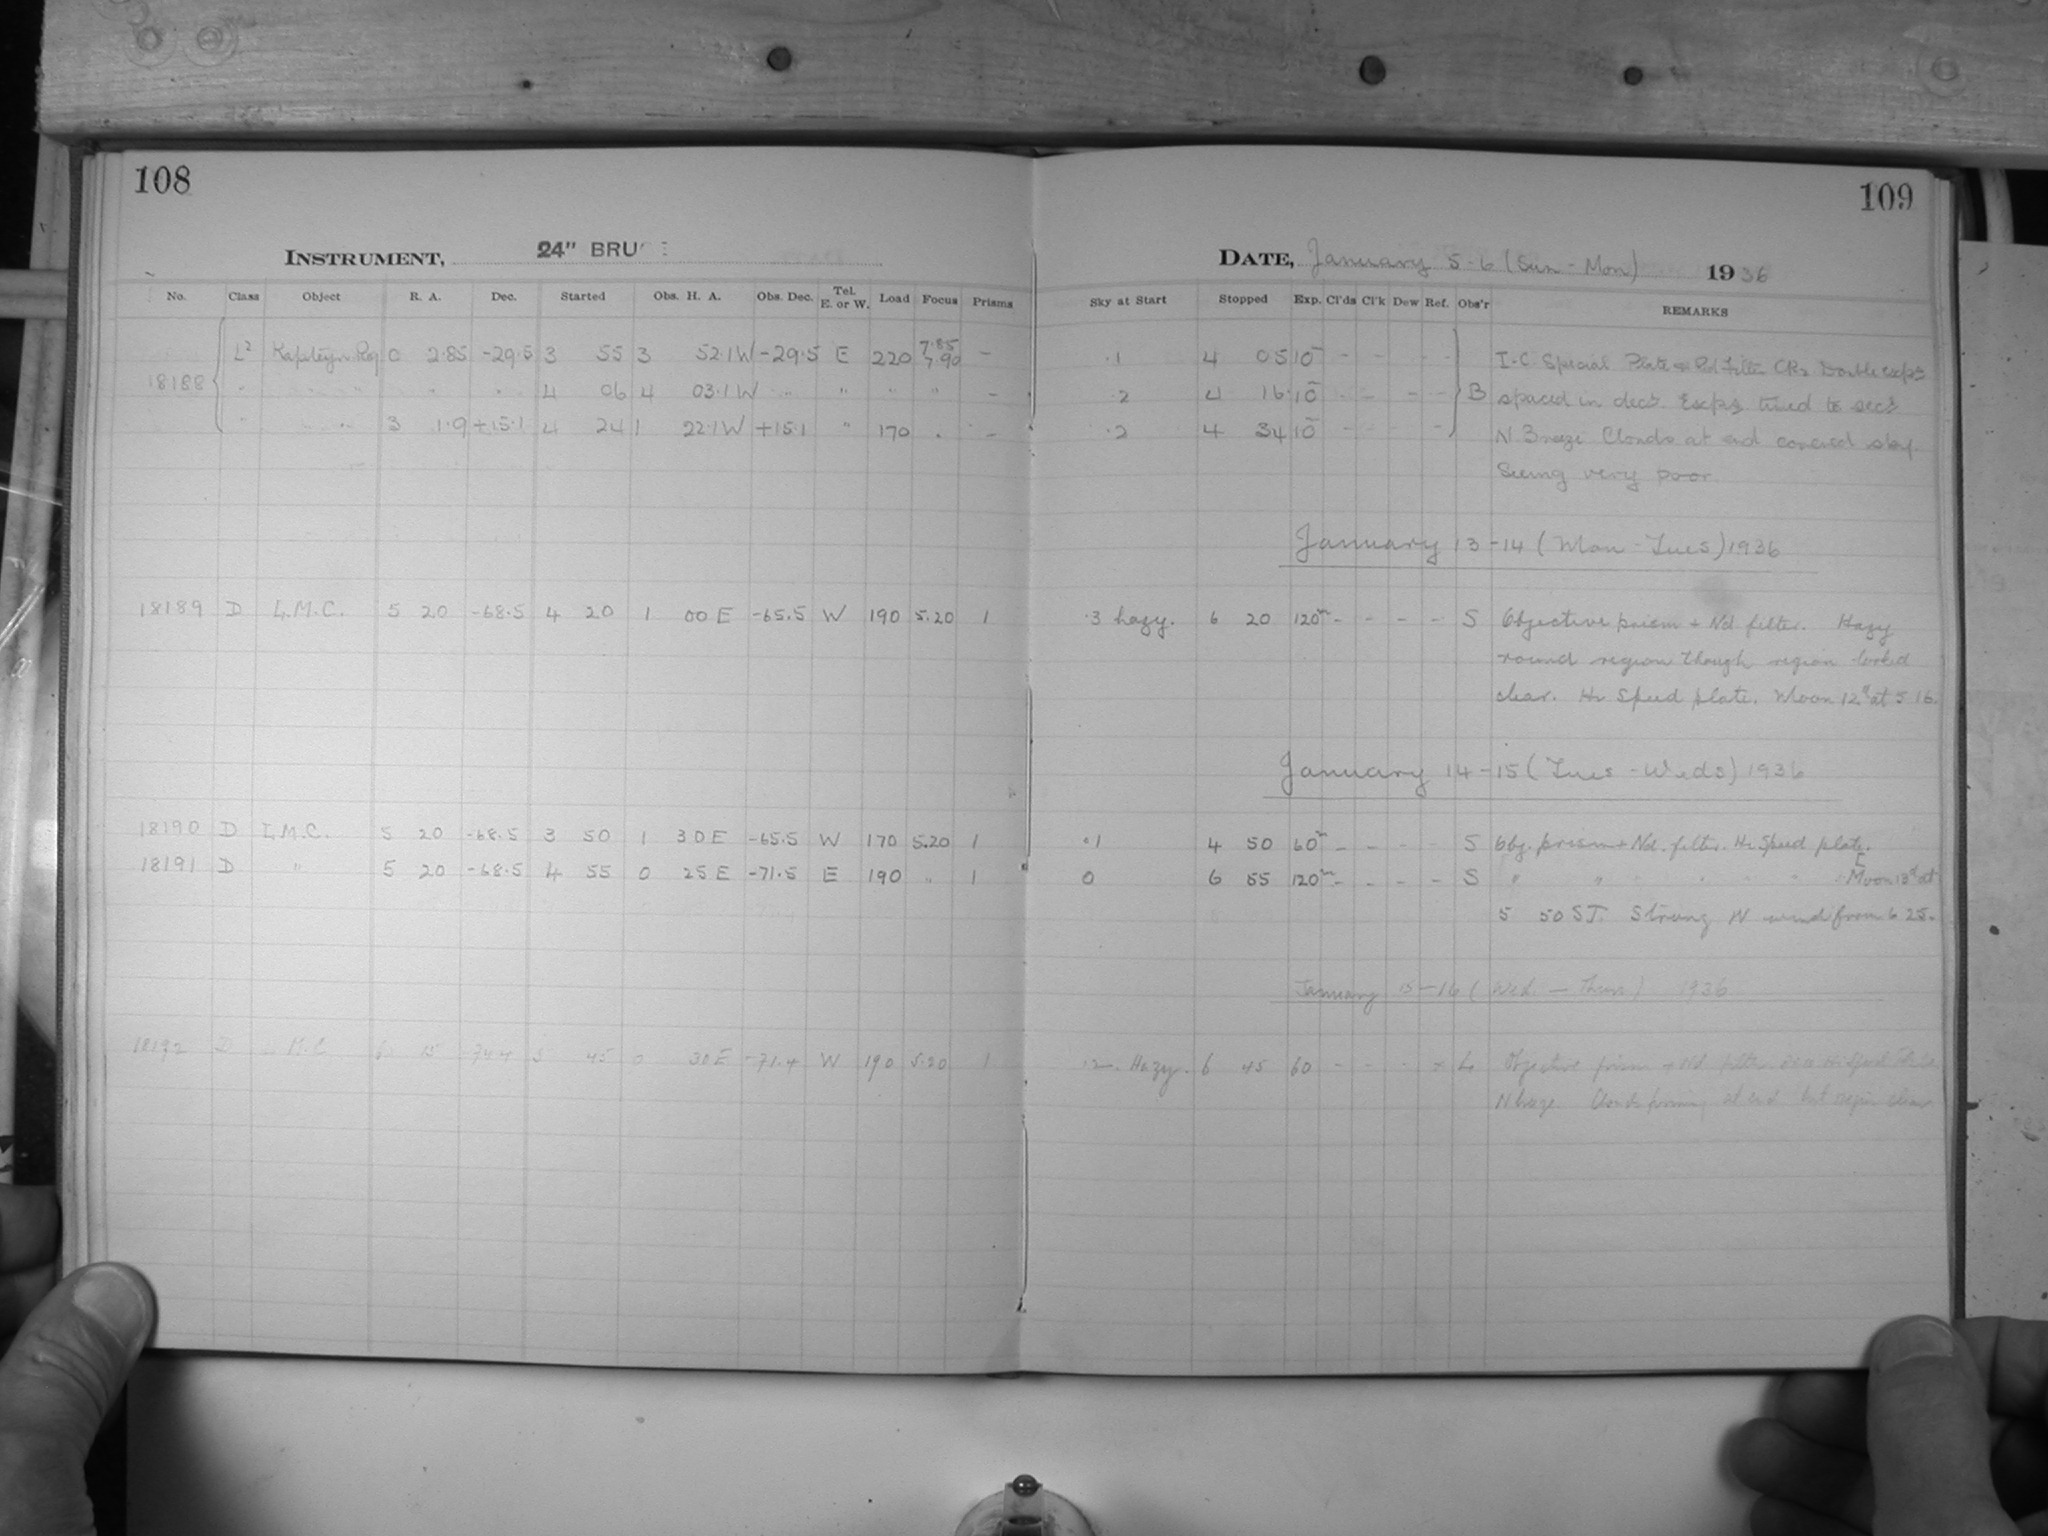 108
109
INSTRUMENT, 24" BRUCE
DATE, January 5-6 (Sun - Mon) 1936
No. Class Object R. A. Dec. Started Obs. H. A. Obs. Dec. Tel. E. or W. Load Focus Prisms
Sky at Start Stopped Exp. Cl'ds Cl'k Dew Ref. Obs'r REMARKS
18188 L² Kapteyn Reg 0 2.85 -29.5 3 55 3 52.1W -29.5 E 220 7.85 7.90 -
.1 4 05 10 - - - - B I-C Special Plate + Red Filter Double exps
" " " " " 4 06 4 03.1W " " " " -
.2 4 16 10 - - - - spaced in dec. Exps. timed to secs
" " " 3 1.9 +15.1 4 24 1 22.1W +15.1 " 170 " -
.2 4 34 10 - - - N Breeze Clouds at end covered sky.
Seeing very poor.
January 13-14 (Mon - Tues) 1936
18189 D L.M.C. 5 20 -68.5 4 20 1 00 E -65.5 W 190 5.20 1
.3 hazy. 6 20 120m - - - - S Objective prism + Nd. filter. Hazy
round region though region looked
clear. Hi Speed plate. Moon 12d at 5 16.
January 14-15 (Tues - Weds) 1936
18190 D L.M.C. 5 20 -68.5 3 50 1 30 E -65.5 W 170 5.20 1
.1 4 50 60m - - - - S Obj. prism + Nd. filter. Hi Speed plate.
18191 D " 5 20 -68.5 4 55 0 25 E -71.5 E 190 " 1
0 6 55 120m - - - - S " " " " " [Moon 13d at
5 50 ST. Strong N wind from 6 25.
January 15-16 (Wed. - Thurs) 1936
18192 D L.M.C. 15 5 45 0 30 E -71.4 W 190 5.20 1
.2 Hazy. 6 45 60 - - - Objective prism + Nd filter
N breeze. Clouds forming at end but region clear